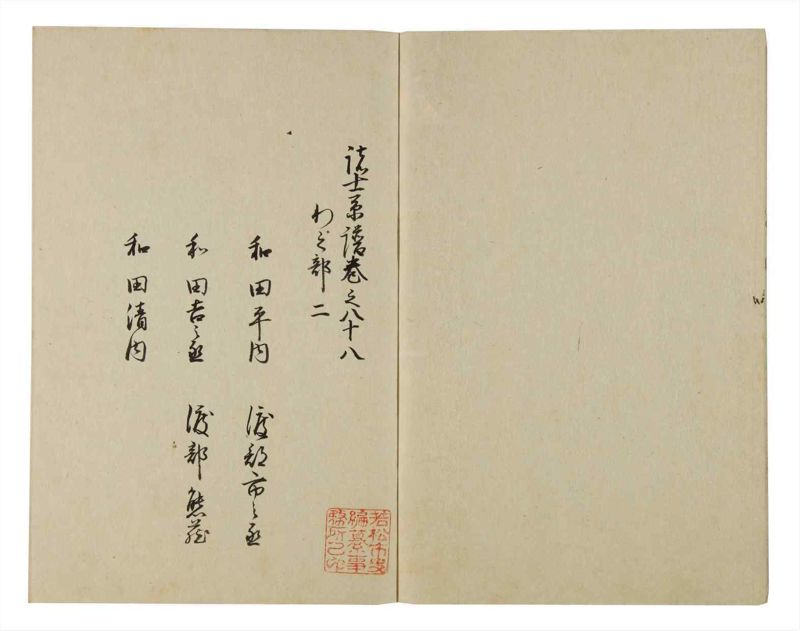 諸士系譜巻之八十八
わノ部 二
和田平内 渡部市之丞
和田吉之丞 渡部熊蔵
和田清内
若松市史
編纂事
務所之印